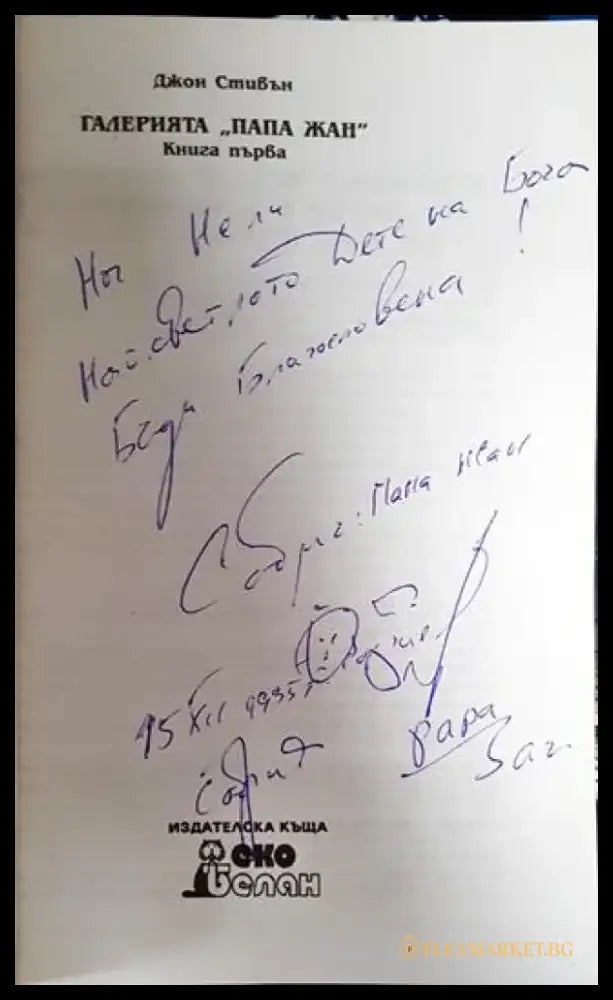 Джон Стивън
ГАЛЕРИЯТА „ПАПА ЖАН"
Книга първа
На Нели
Най-светлото Дете на Бога
Бъди Благословена!
С обич: Папа Жан
15 XII 1995г.
София
ИЗДАТЕЛСКА КЪЩА
еко
белан
FLEAMARKET.BG